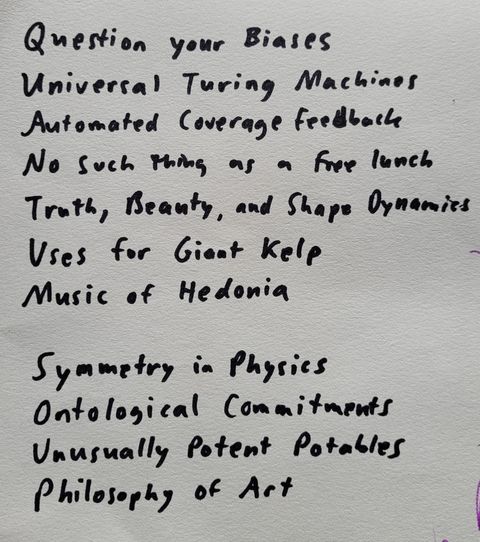 Question your Biases
Universal Turing Machines
Automated Coverage Feedback
No such thing as a free lunch
Truth, Beauty, and Shape Dynamics
Uses for Giant Kelp
Music of Hedonia
Symmetry in Physics
Ontological Commitments
Unusually Potent Potables
Philosophy of Art